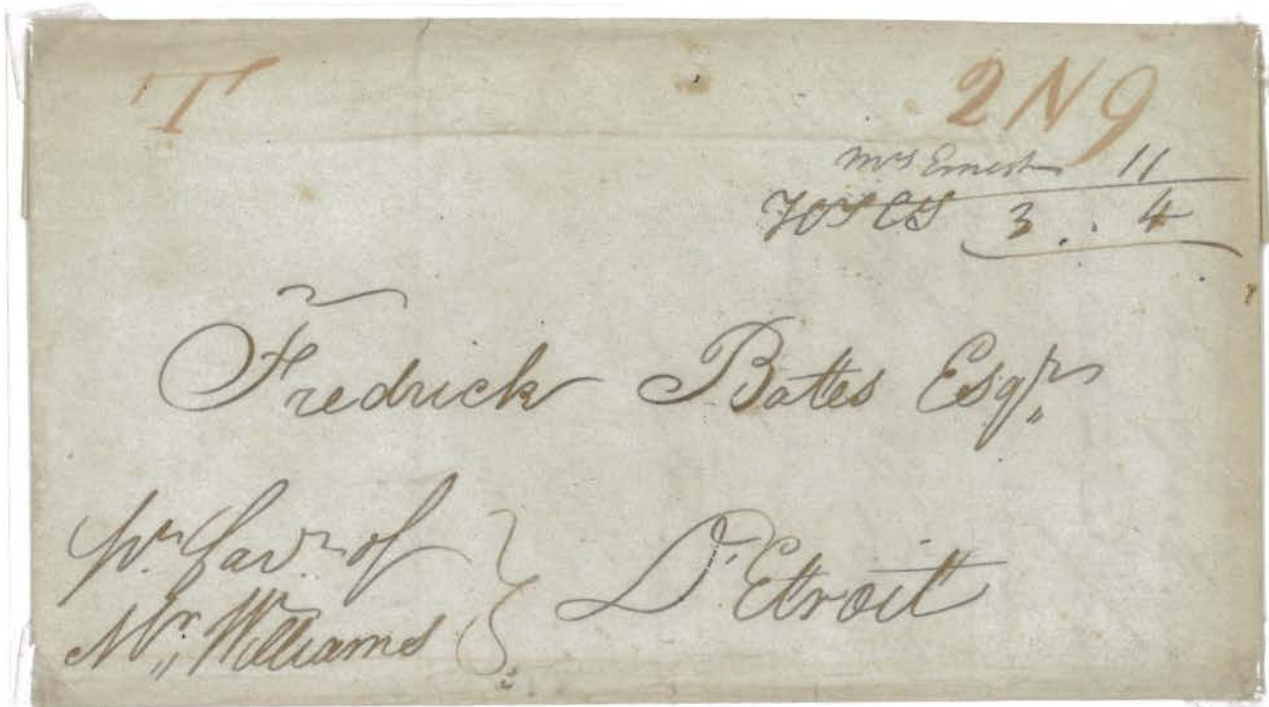 T
2 N 9
Mrs Ernest 11
3 .. 4
Fredrick Bates Esqr
pr. favr. of
Mr. Williams
D'Etroit